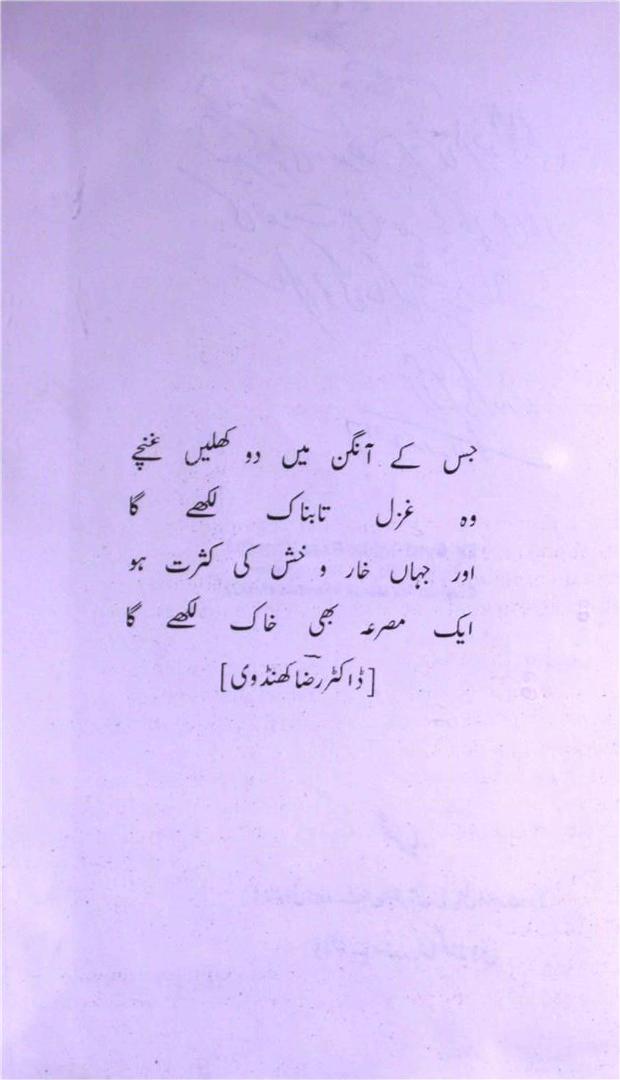 جس کے آنگن میں دو کھلیں غنچے
وہ غزل تابناک لکھے گا
اور جہاں خار و خس کی کثرت ہو
ایک مصرعہ بھی خاک لکھے گا
[ڈاکٹر رضاؔ کھنڈوی]